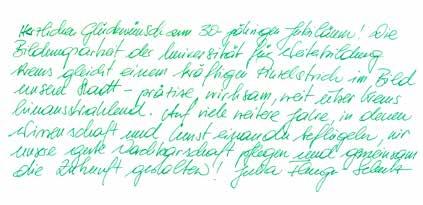 Herzlichen Glückwunsch zum 30-jährigen Jubiläum! Die
Bildungsarbeit der Universität für Weiterbildung
Krems gleicht einem kräftigen Pinselstrich im Bild
unserer Stadt – präzise, wirksam, weit über Krems
hinausstrahlend. Auf viele weitere Jahre, in denen
Wissenschaft und Kunst einander beflügeln, wir
unsere gute Nachbarschaft pflegen und gemeinsam
die Zukunft gestalten! Julia